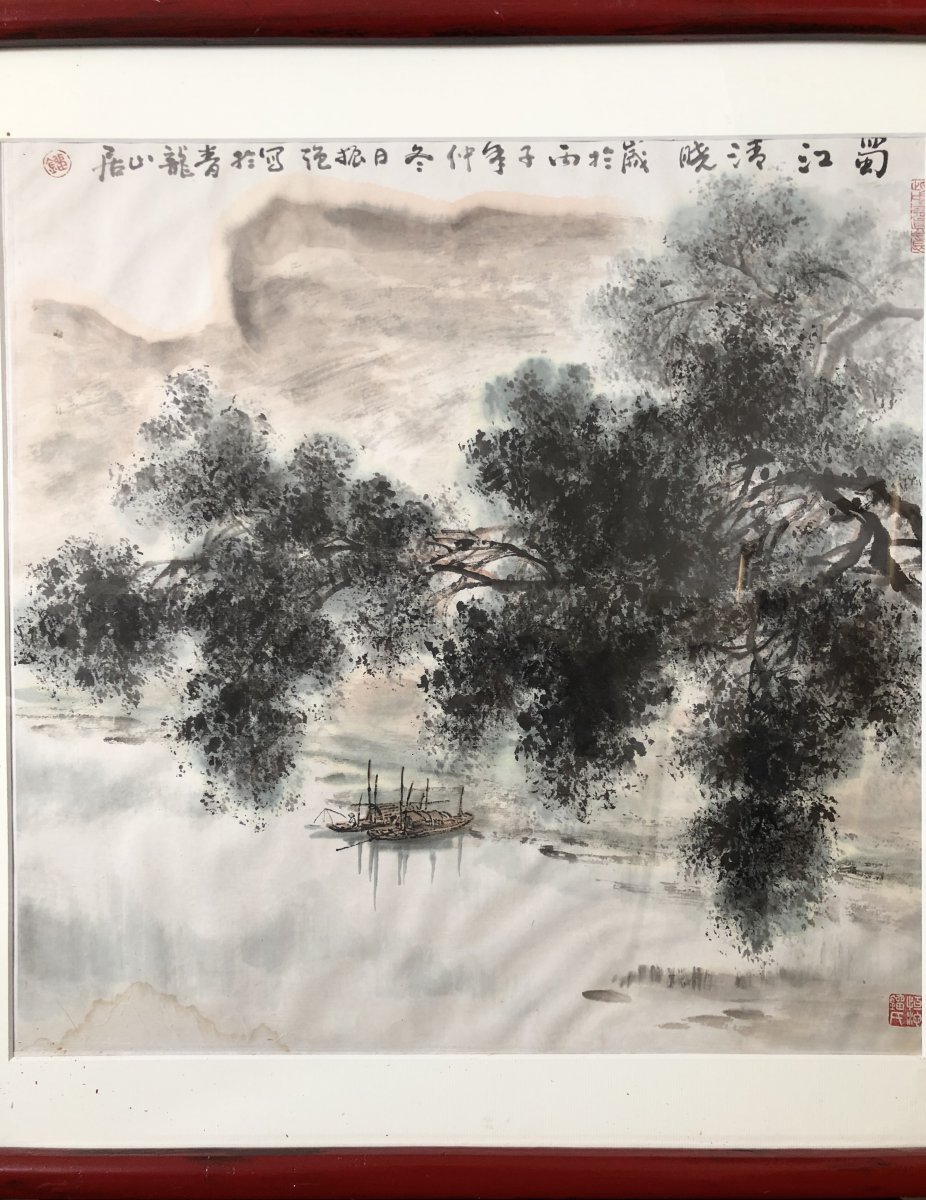 蜀江清晓 岁於丙子年仲冬日振强写於青龙山居